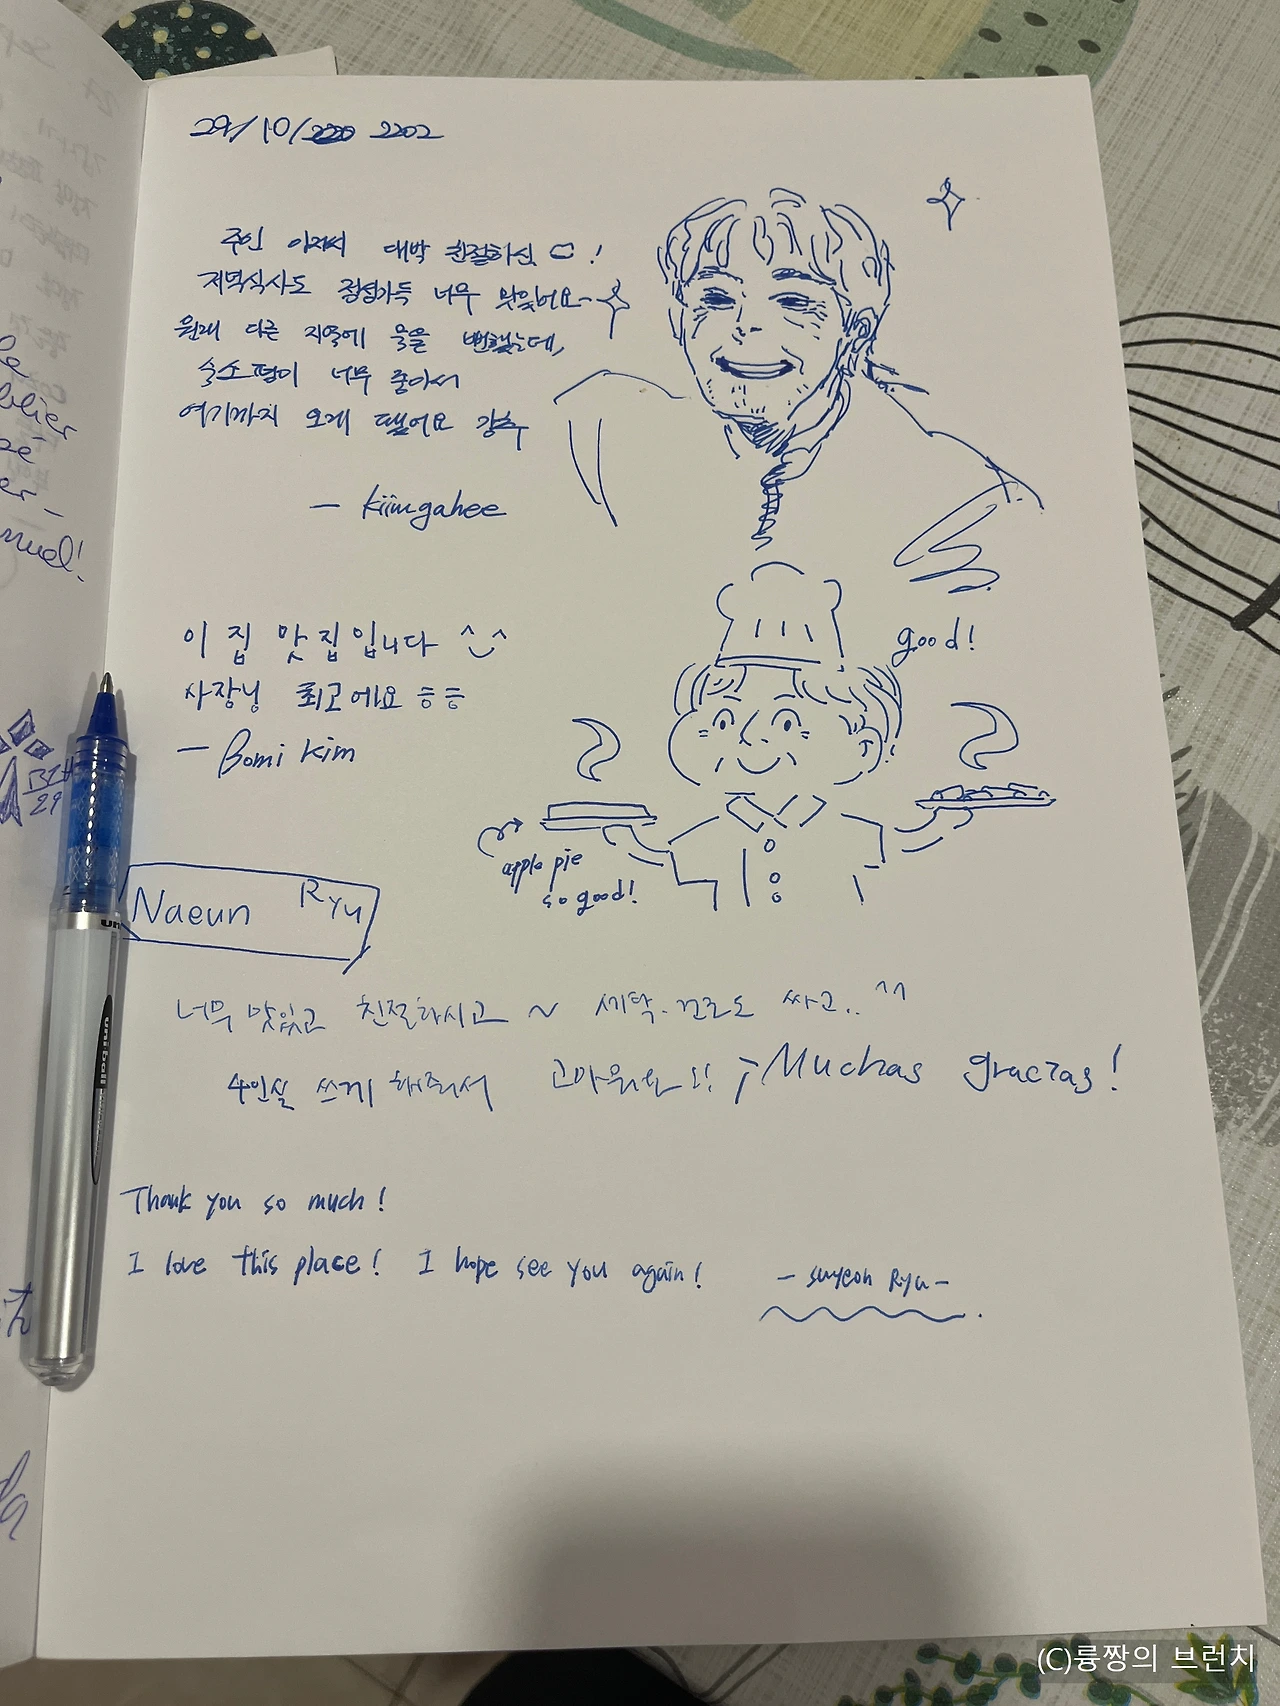 29/10/2202
주인 아저씨 대박 친절하심 ♡!
저녁식사도 정성가득 너무 맛있어요~
원래 다른 지역에 묵을 뻔했는데,
숙소평이 너무 좋아서
여기까지 오게 됐어요 강추
— kiimgahee
이 집 맛집입니다 ^‿^
good!
사장님 최고에요 ㅎㅎ
— Bomi Kim
apple pie
so good!
Naeun Ryu
너무 맛있고 친절하시고 ~ 세탁.건조도 싸고.. ^^
4인실 쓰게 해줘서 고마워요!! ¡Muchas gracias!
Thank you so much!
I love this place! I hope see you again! - suyeon Ryu -
uni-ball
(C)륭짱의 브런치